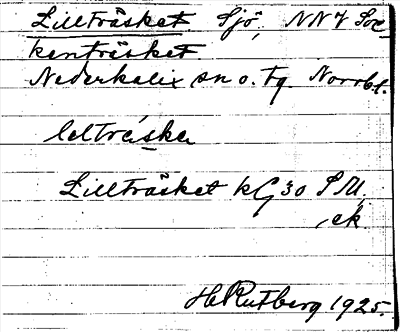 Lillträsket. Sjö, NNV Soc-
kenträsket
Nederkalix sn o. tg. Norrb.l.
leltrèska
Lillträsket kG 30 SM.
ek.
H. Rutberg 1925.